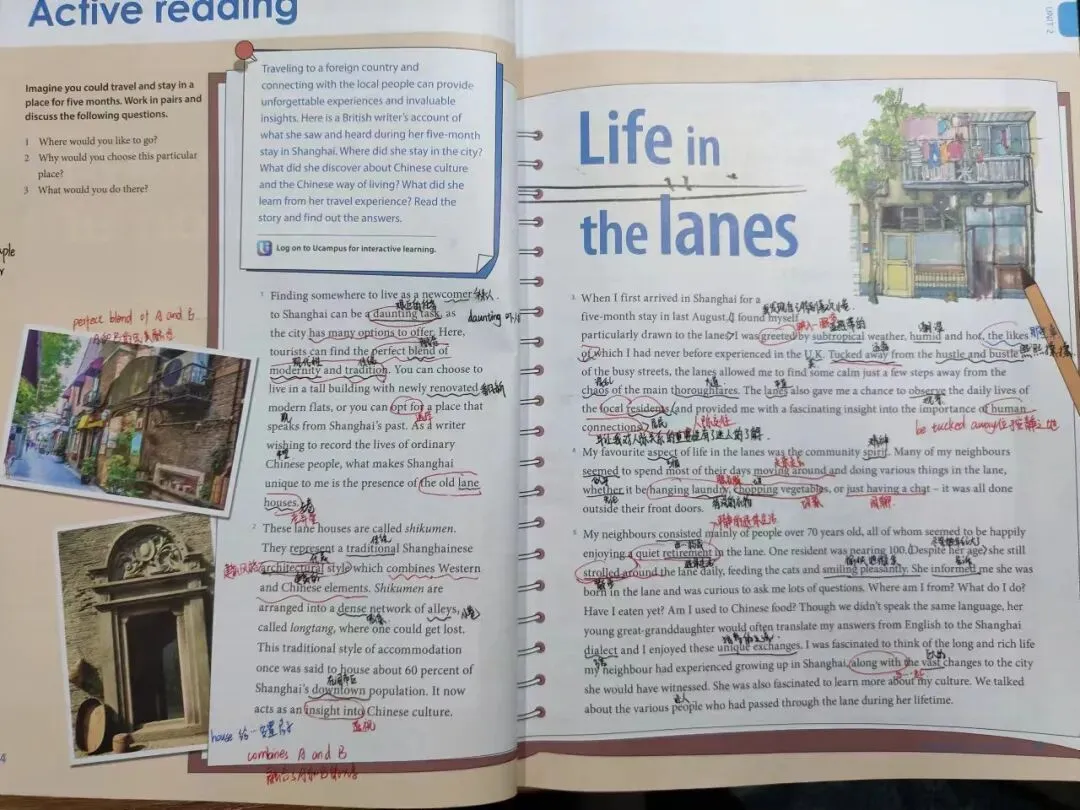 Active reading
UNIT 2
Imagine you could travel and stay in a
place for five months. Work in pairs and
discuss the following questions.
1 Where would you like to go?
2 Why would you choose this particular
place?
3 What would you do there?
Traveling to a foreign country and
connecting with the local people can provide
unforgettable experiences and invaluable
insights. Here is a British writer's account of
what she saw and heard during her five-month
stay in Shanghai. Where did she stay in the city?
What did she discover about Chinese culture
and the Chinese way of living? What did she
learn from her travel experience? Read the
story and find out the answers.
U Log on to Ucampus for interactive learning.
perfect blend of A and B
1 Finding somewhere to live as a newcomer
to Shanghai can be a daunting task, as
daunting
the city has many options to offer. Here,
tourists can find the perfect blend of
modernity and tradition. You can choose to
live in a tall building with newly renovated
modern flats, or you can opt for a place that
speaks from Shanghai's past. As a writer
wishing to record the lives of ordinary
Chinese people, what makes Shanghai
unique to me is the presence of the old lane
houses.
2 These lane houses are called shikumen.
They represent a traditional Shanghainese
architectural style which combines Western
and Chinese elements. Shikumen are
arranged into a dense network of alleys,
called longtang, where one could get lost.
This traditional style of accommodation
once was said to house about 60 percent of
Shanghai's downtown population. It now
acts as an insight into Chinese culture.
house
combines A and B
4
Life in
the lanes
3 When I first arrived in Shanghai for a
five-month stay in last August, I found myself
particularly drawn to the lanes. I was greeted by subtropical weather, humid and hot, the likes
of which I had never before experienced in the U.K. Tucked away from the hustle and bustle
of the busy streets, the lanes allowed me to find some calm just a few steps away from the
chaos of the main thoroughfares. The lanes also gave me a chance to observe the daily lives of
the local residents and provided me with a fascinating insight into the importance of human
connections.
be tucked away
4 My favourite aspect of life in the lanes was the community spirit. Many of my neighbours
seemed to spend most of their days moving around and doing various things in the lane,
whether it be hanging laundry, chopping vegetables, or just having a chat – it was all done
outside their front doors.
5 My neighbours consisted mainly of people over 70 years old, all of whom seemed to be happily
enjoying a quiet retirement in the lane. One resident was nearing 100. Despite her age, she still
strolled around the lane daily, feeding the cats and smiling pleasantly. She informed me she was
born in the lane and was curious to ask me lots of questions. Where am I from? What do I do?
Have I eaten yet? Am I used to Chinese food? Though we didn't speak the same language, her
young great-granddaughter would often translate my answers from English to the Shanghai
dialect and I enjoyed these unique exchanges. I was fascinated to think of the long and rich life
my neighbour had experienced growing up in Shanghai, along with the vast changes to the city
she would have witnessed. She was also fascinated to learn more about my culture. We talked
about the various people who had passed through the lane during her lifetime.